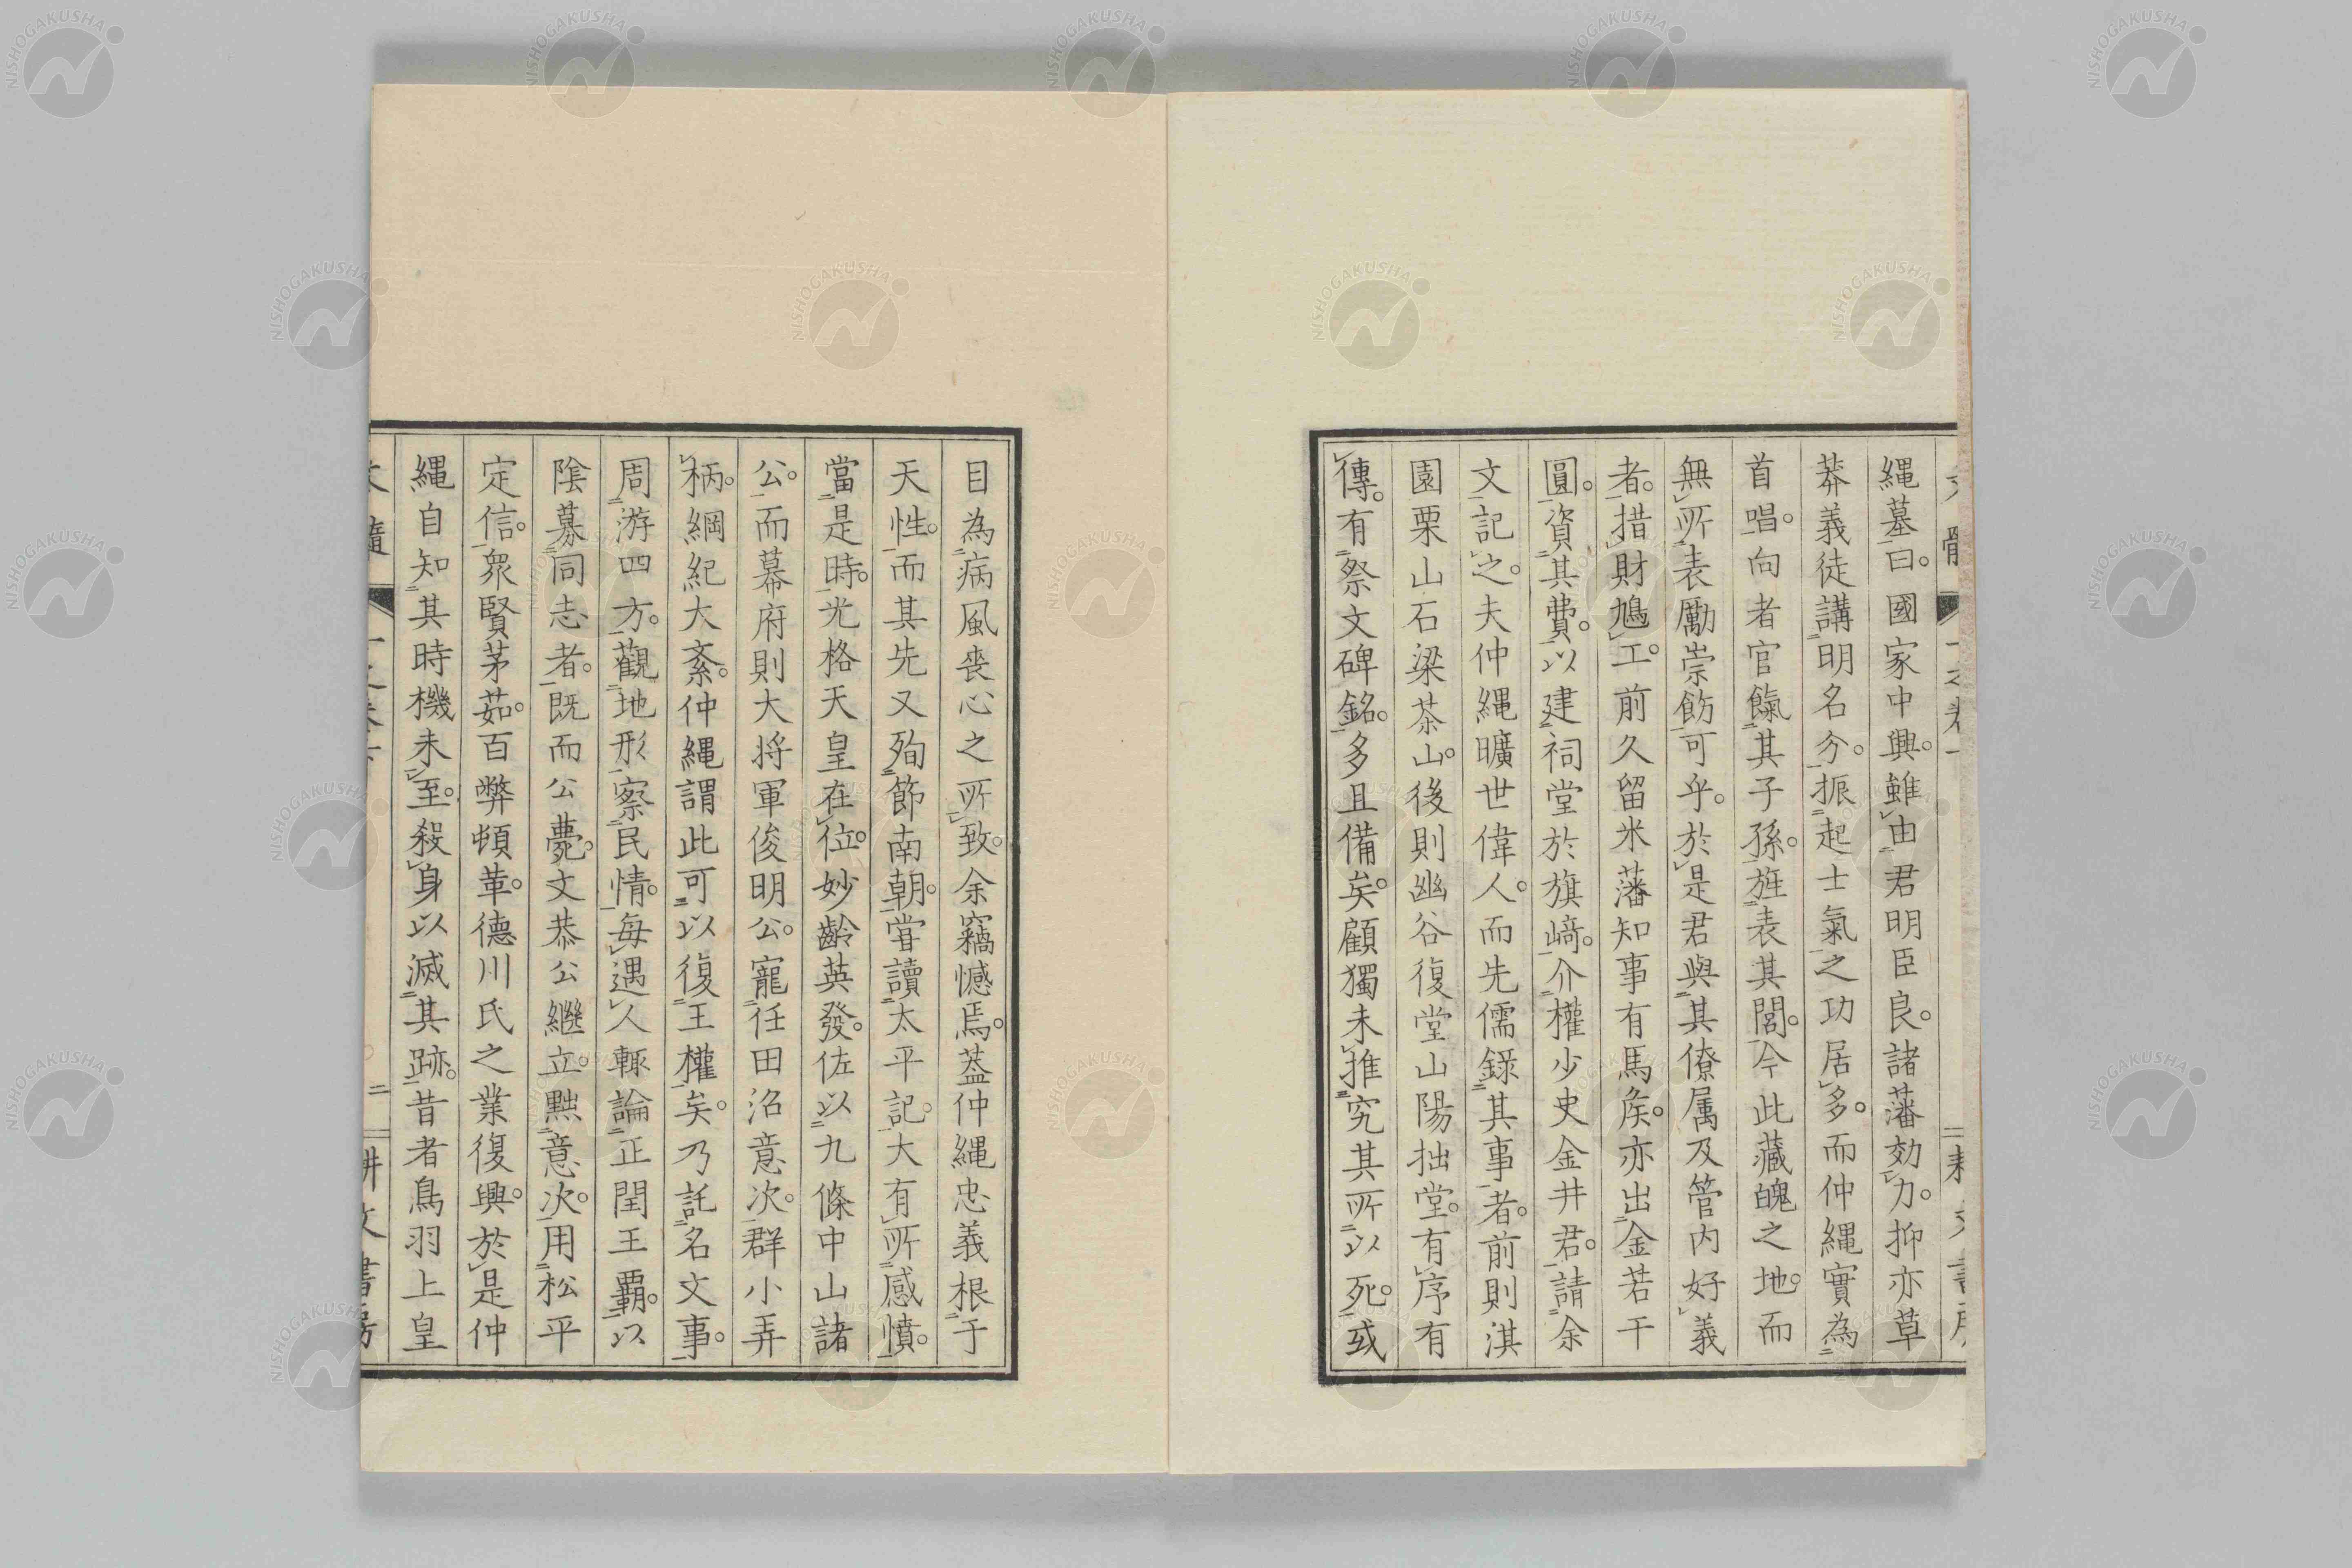 縄墓曰。國家中興。雖由君明臣良。諸藩効力。抑亦草
莽義徒講明名分。振起士氣之功居多。而仲縄實為
首唱。向者官餼其子孫。旌表其閭。今此藏魄之地。而
無所表勵崇飭可乎。於是君與其僚属及管内好義
者。措財鳩工。前久留米藩知事有馬矦。亦出金若干
圓。資其費。以建祠堂於旗﨑。介權少史金井君。請余
文記之。夫仲縄曠世偉人。而先儒録其事者。前則淇
園栗山石梁茶山。後則幽谷復堂山陽拙堂。有序有
傳。有祭文碑銘。多且備矣。顧獨未推究其所以死。或
目為病風喪心之所致。余竊憾焉。葢仲縄忠義根于
天性。而其先又殉節南朝。甞讀太平記。大有所感憤。
當是時。光格天皇在位。妙齡英發。佐以九條中山諸
公。而幕府則大将軍俊明公。寵任田沼意次。群小弄
柄。綱紀大紊。仲縄謂此可以復王權矣。乃託名文事。
周游四方。觀地形察民情。毎遇人輙論正閏王覇。以
陰募同志者。既而公薨。文恭公繼立。黜意次。用松平
定信。衆賢茅茹。百弊頓革。德川氏之業復興。於是仲
縄自知其時機未至。殺身以滅其跡。昔者鳥羽上皇
二